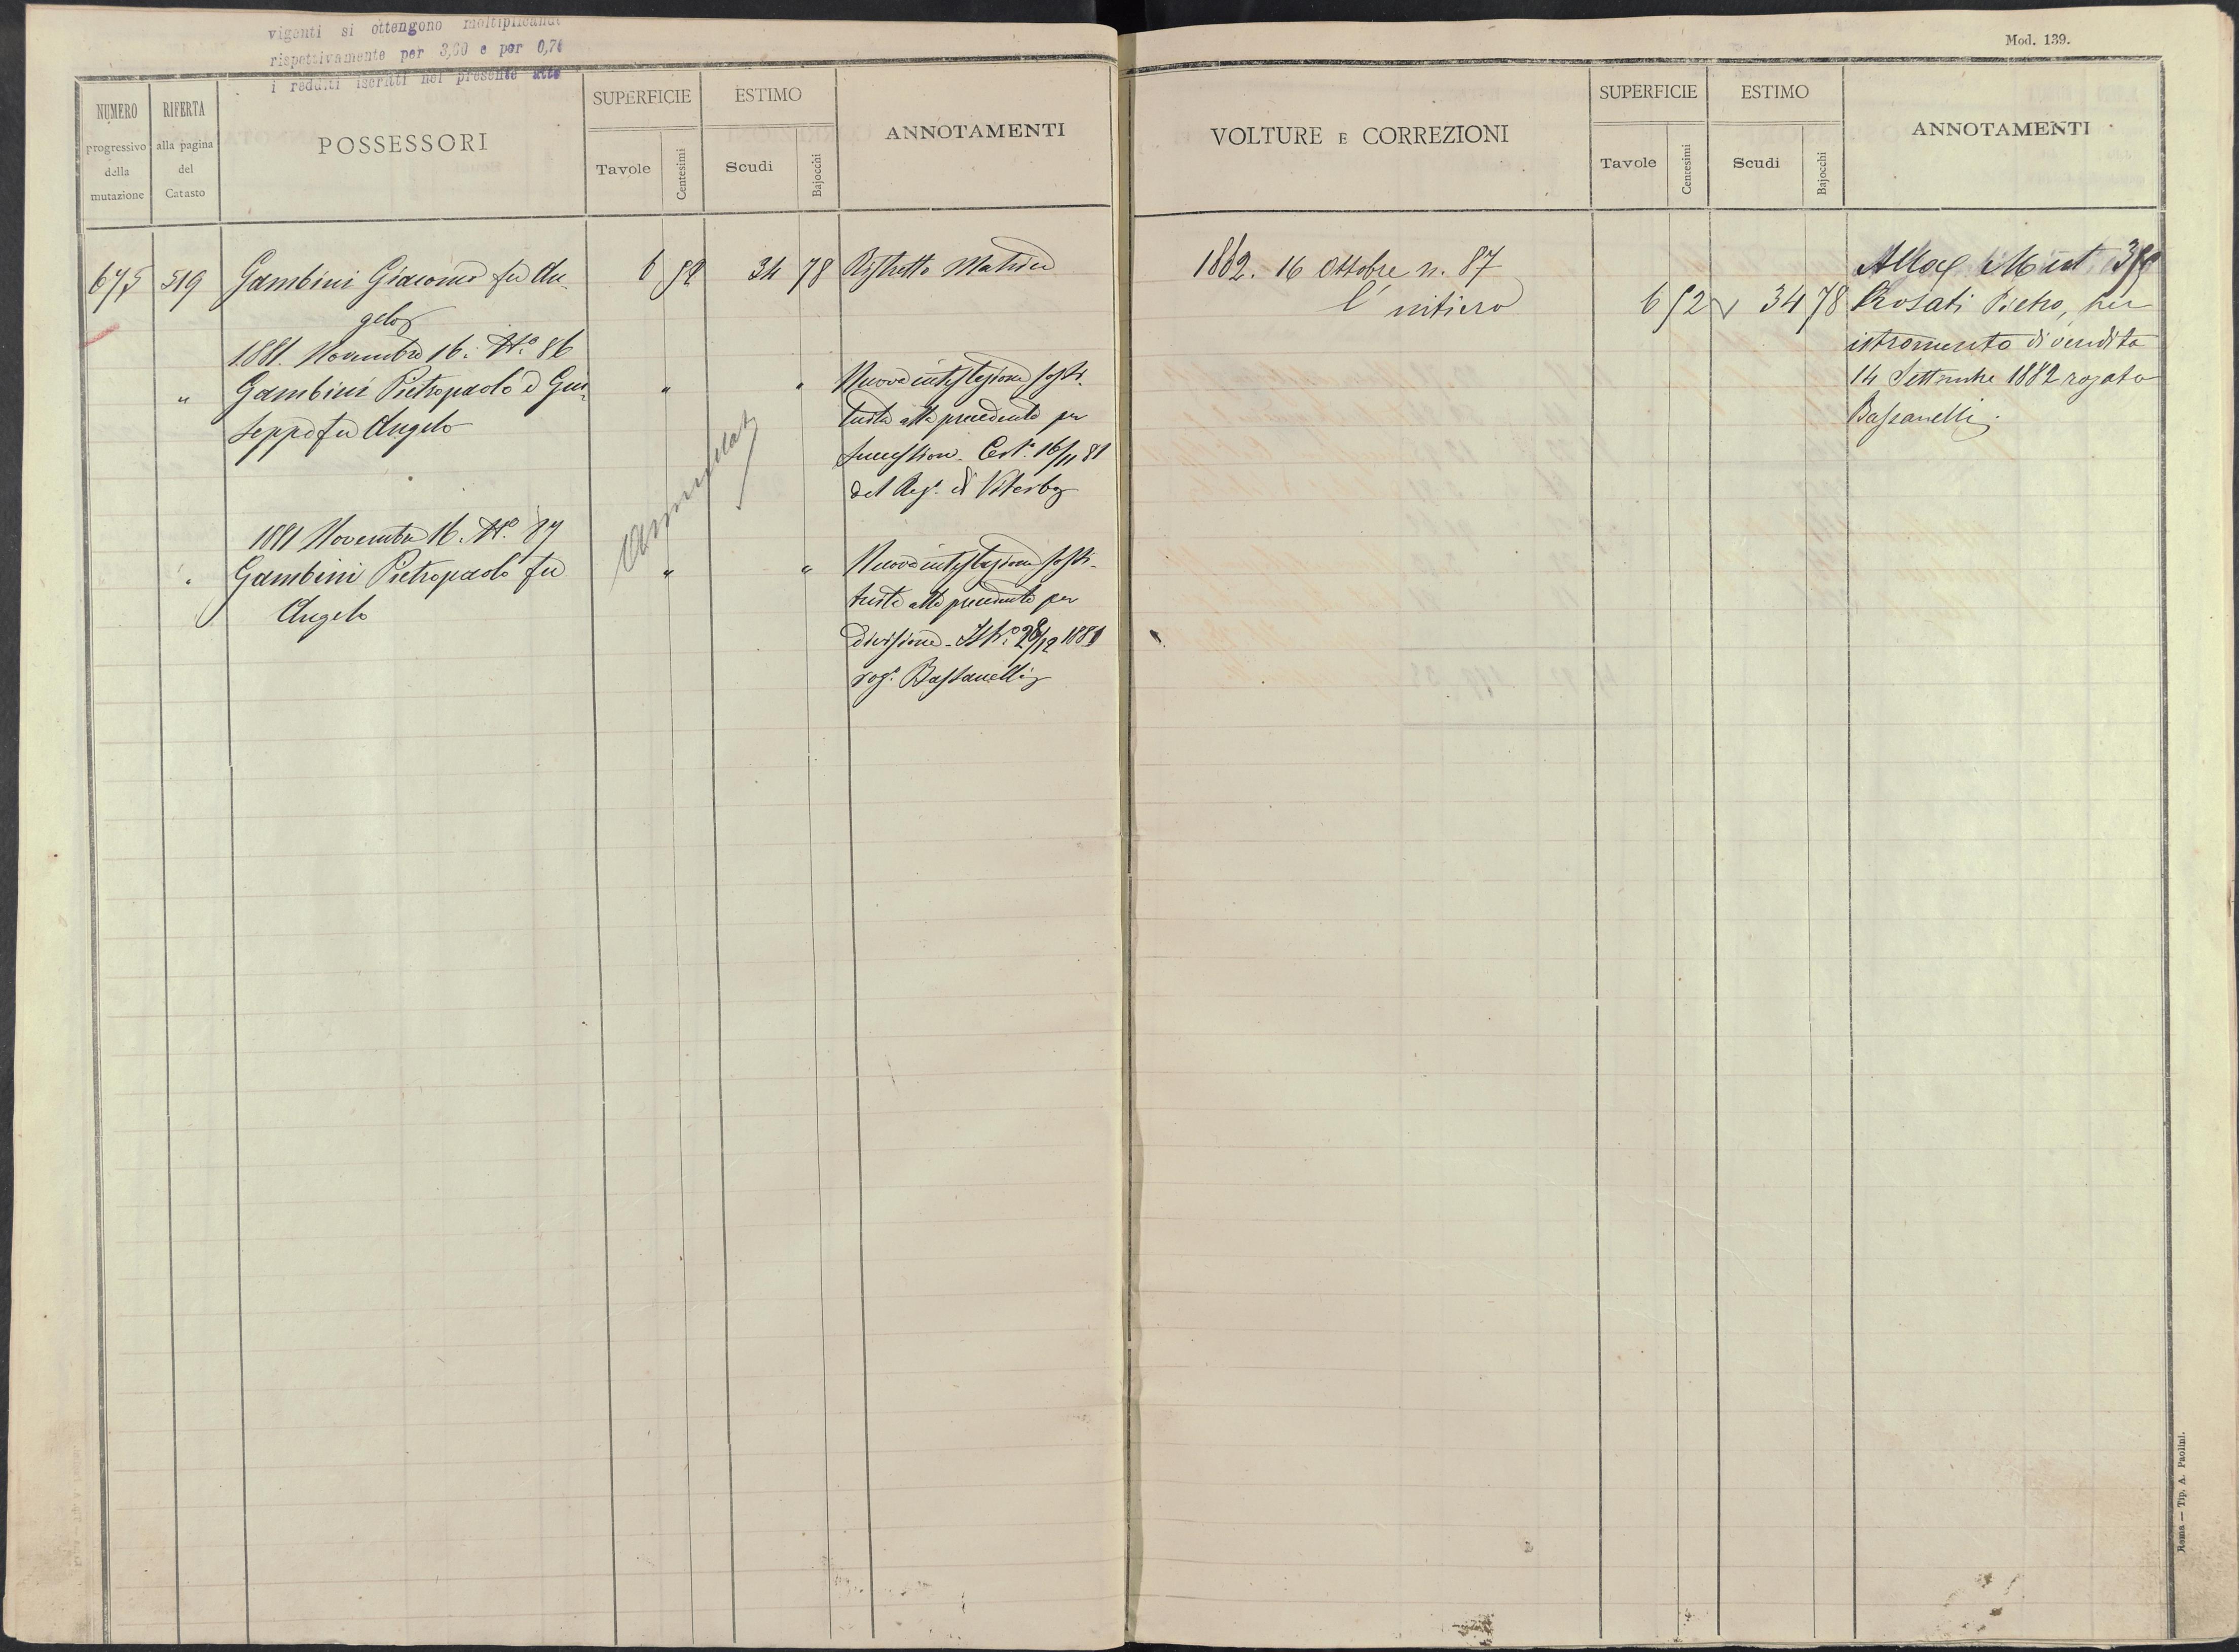 vigenti si ottengono moltiplicandi
rispettivamente per 3,60 e per 0,76
i redditi iscritti nel presente atto
Mod. 139.
NUMERO
progressivo
della
mutazione
RIFERTA
alla pagina
del
Catasto
POSSESSORI
SUPERFICIE
Tavole
Centesimi
ESTIMO
Scudi
Bajocchi
ANNOTAMENTI
675 519 Gambini Giacomo fu An- 6 52 34 78 Ristretto Matrice
gelo
1881. Novembre 16. N.º 86
" Gambini Pietropaolo e Giu- " " Nuova intestazione sosti-
seppe fu Angelo tuita alla precedente per
successione. Cert.º 16/11 81
del Reg.º di Viterbo
Annullat
1881 Novembre 16. N.º 87
" Gambini Pietropaolo fu " " Nuova intestazione sosti-
Angelo tuita alla precedente per
divisione. Ist.º 28/12 1881
rog.º Bassanelli
VOLTURE E CORREZIONI
SUPERFICIE
Tavole
Centesimi
ESTIMO
Scudi
Bajocchi
ANNOTAMENTI
1882. 16 Ottobre n. 87 Alla Mut.
l' intiero 6 52 34 78 Rosati Pietro, per
istromento di vendita
14 Settembre 1882 rogato
Bassanelli.
Roma — Tip. A. Paolini.